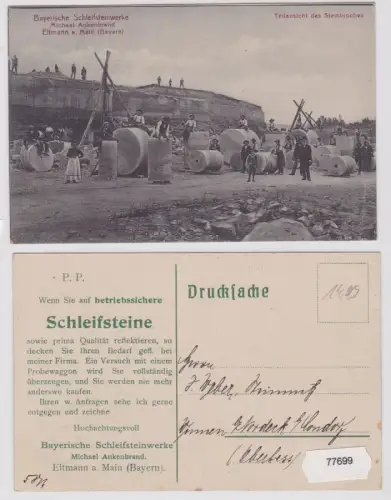 Bayerische Schleifsteinwerke
Michael Ankenbrand
Eltmann a. Main (Bayern)
Teilansicht des Steinbruches
P. P.
Wenn Sie auf betriebssichere
Schleifsteine
sowie prima Qualität reflektieren, so
decken Sie Ihren Bedarf gefl. bei
meiner Firma. Ein Versuch mit einem
Probewaggon wird Sie vollständig
überzeugen, und Sie werden nie mehr
anderswo kaufen.
Ihren w. Anfragen sehe ich gerne
entgegen und zeichne
Hochachtungsvoll
Bayerische Schleifsteinwerke
Michael Ankenbrand.
Eltmann a Main (Bayern).
Drucksache
Herrn
77699